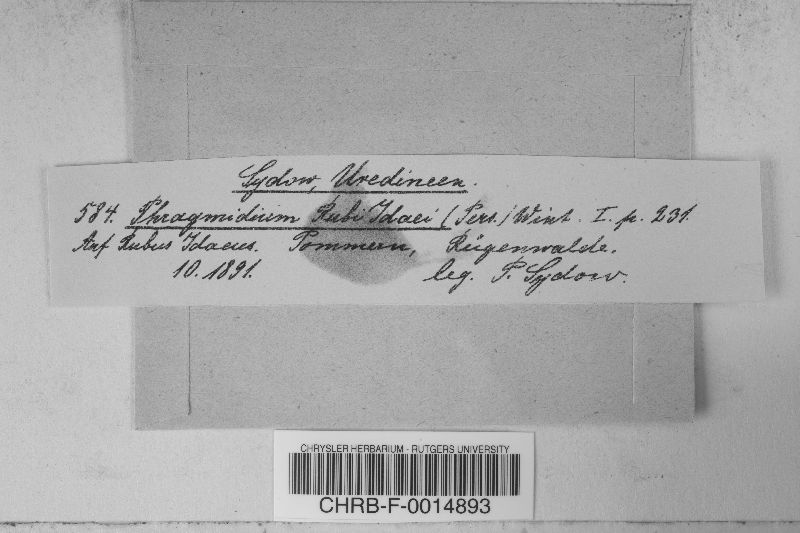 Sydow, Uredineen.
584. Phragmidium Rubi Idaei (Pers.) Wint. I. p. 231.
Auf Rubus Idaeus. Pommern, Rügenwalde.
10. 1891. leg. P. Sydow.
CHRYSLER HERBARIUM - RUTGERS UNIVERSITY
CHRB-F-0014893